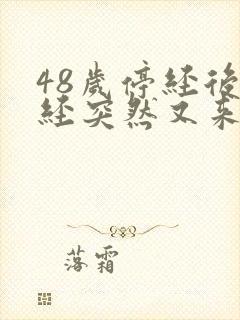 48歲停經後
經突然又來
落霜